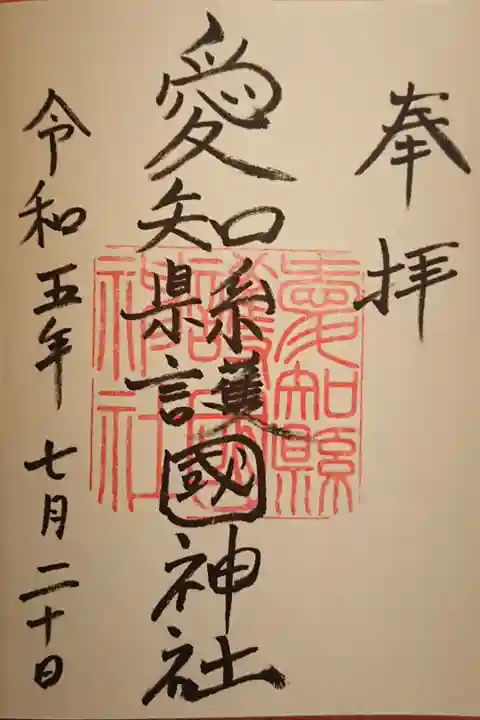 奉拝
愛知縣護國神社
愛知縣護國神社
令和五年七月二十日